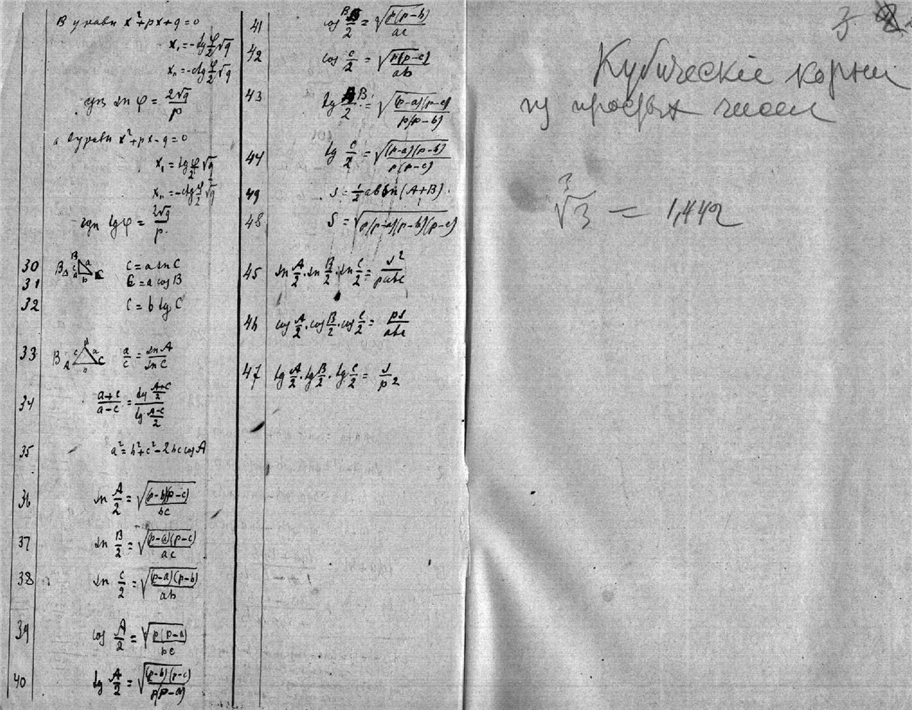 В уравн x²+px+q=0
x₁=-tg φ/2 √q
x₁₁=-ctg φ/2 √q
sin φ = 2√q/p
в уравн x²+px-q=0
x₁=tg φ/2 √q
x₁₁=-ctg φ/2 √q
tg φ = 2√q/p
30 c=a sin C
31 c=a cos B
32 c=b tg C
33 a/c = sin A/sin C
34 (a+c)/(a-c) = tg (A+C)/2 / tg (A-C)/2
35 a²=b²+c²-2bc cos A
36 sin A/2 = √((p-b)(p-c)/bc)
37 sin B/2 = √((p-a)(p-c)/ac)
38 sin C/2 = √((p-a)(p-b)/ab)
39 cos A/2 = √(p(p-a)/bc)
40 tg A/2 = √((p-b)(p-c)/p(p-a))
41 cos B/2 = √(p(p-b)/ac)
42 cos C/2 = √(p(p-c)/ab)
43 tg B/2 = √((p-a)(p-c)/p(p-b))
44 tg C/2 = √((p-a)(p-b)/p(p-c))
49 S = ½ ab sin (A+B)
48 S = √(p(p-a)(p-b)(p-c))
45 sin A/2 · sin B/2 · sin C/2 = s²/pabc
46 cos A/2 · cos B/2 · cos C/2 = ps/abc
47 tg A/2 · tg B/2 · tg C/2 = s/p²
3.
Кубическіе корни
из простых чисел
³√3 = 1,442